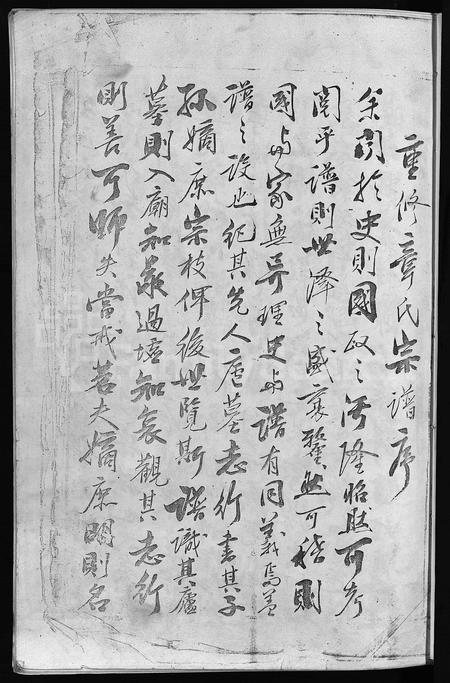 重修章氏宗譜序
余閱於史則國政之汚隆昭然可考
閱乎譜則世澤之盛衰鑿然可稽則
國與家無异理史與譜有同義焉蓋
譜之設也紀其先人廬墓志行書其子
孫嫡庶宗枝俾後世覽斯譜識其廬
墓則入廟知敬過墟知哀觀其志行
則善可師失當戒若夫嫡庶明則名